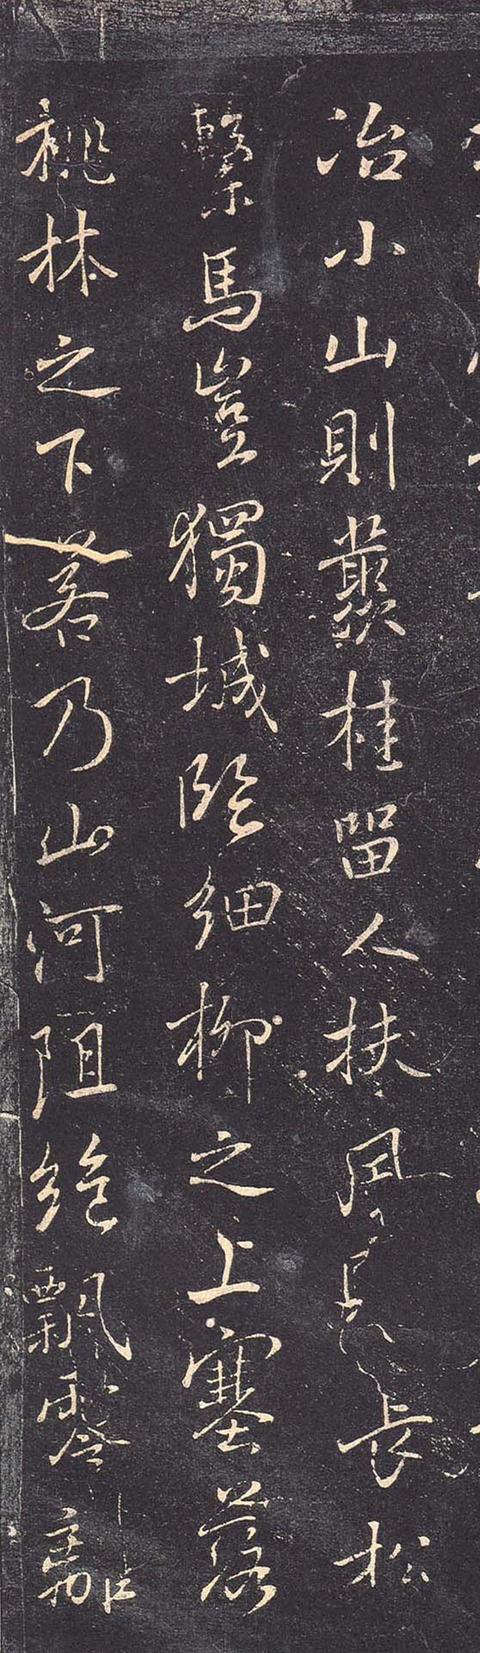 冶小山則叢桂留人扶風則長松
繫馬豈獨城臨細柳之上塞落
桃林之下若乃山河阻絕飄零離